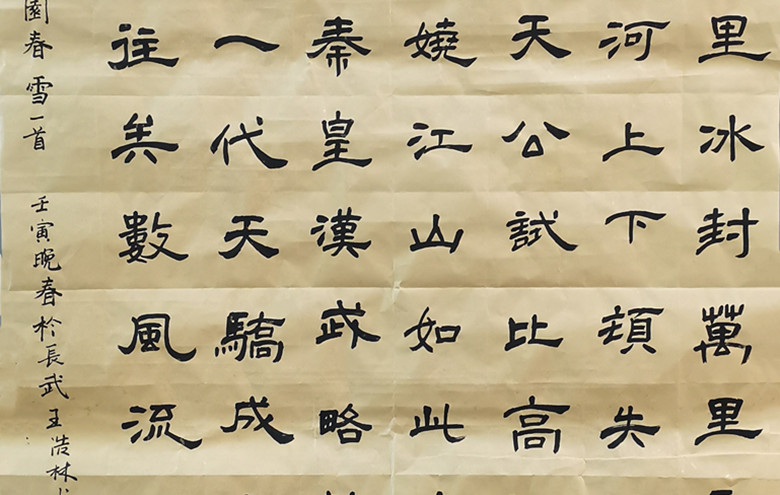 里冰封萬里
河上下頓失
天公試比高
嬈江山如此
秦皇漢武略
一代天驕成
往矣數風流
園春雪一首 壬寅晚春於長武王浩林